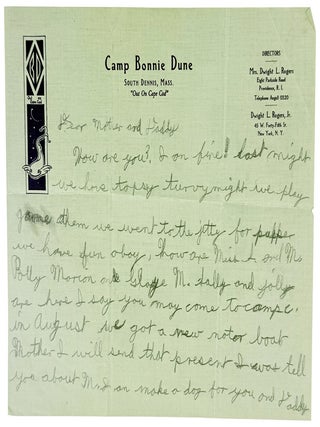 Camp Bonnie Dune
South Dennis, Mass.
"Out On Cape Cod"
DIRECTORS
Mrs. Dwight L. Rogers
Eight Parkside Road
Providence, R. I.
Telephone Angell 5520
Dwight L. Rogers, Jr.
45 W. Forty-Fifth St.
New York, N. Y.
Dear Mother and Daddy
How are you? I on fine! last night
we hive topsy turvy night we play
game them we went to the jitty for
we have fun obay, how are Miss A and Mr
Polly Marion M. Sally and jolly
are here I say you may come to
in August we got a new notor boat
Mother I will send that present I was tell
you about an make a dog for you and Daddy